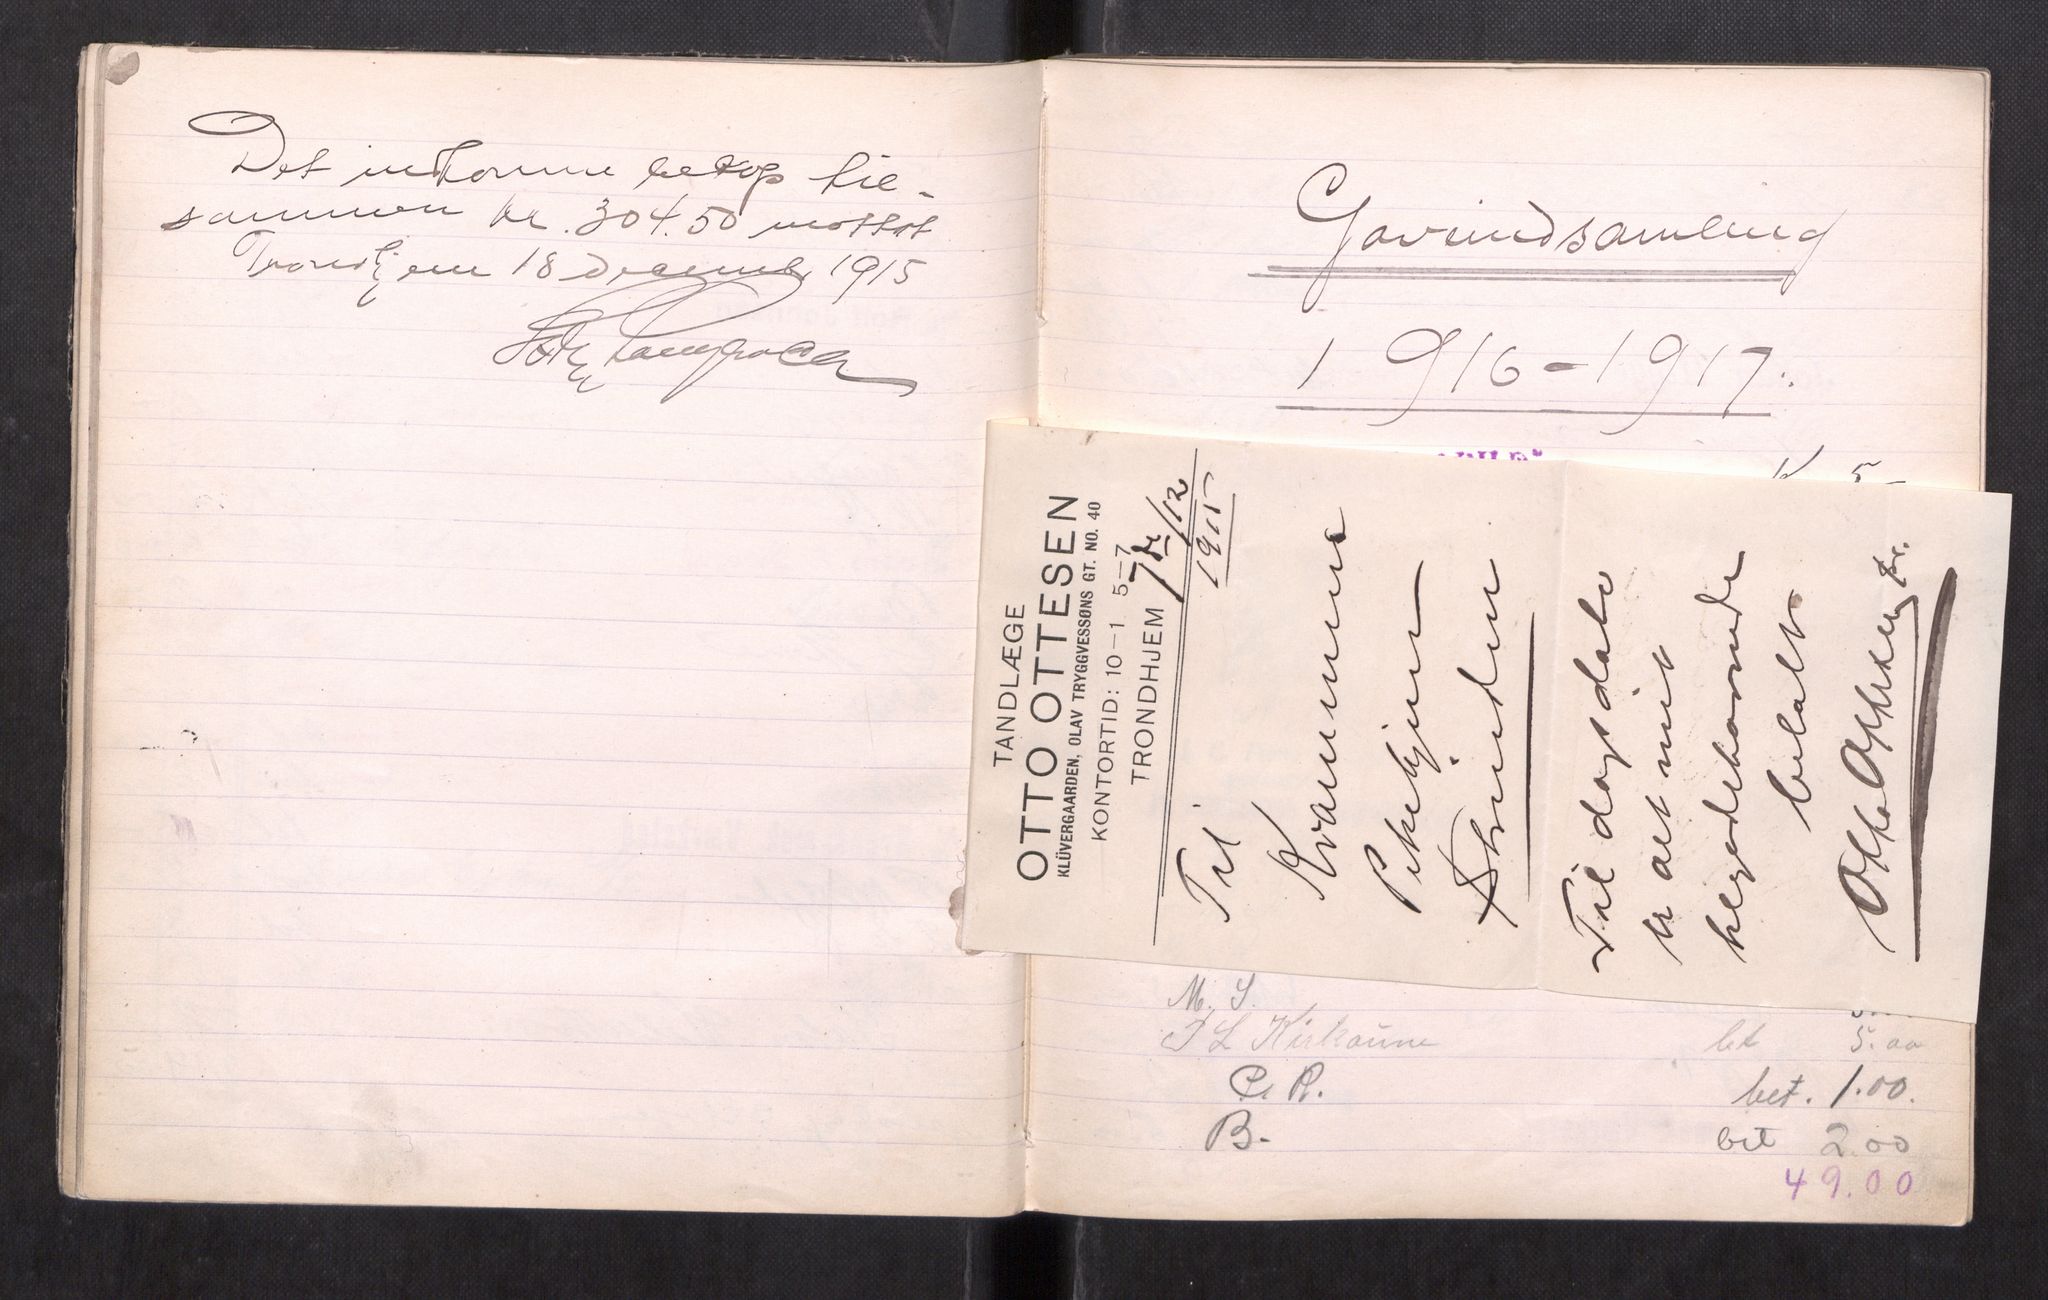 Det inkomne beløp til-
sammen kr. 304.50 mottat
Trondhjem 18 decembr 1915
Gaveindsamling
1916-1917.
K 5
TANDLÆGE
OTTO OTTESEN
KLÜVERGAARDEN, OLAV TRYGGVESSØNS GT. NO. 40
KONTORTID: 10-1 5-7
TRONDHJEM 7de/12
1915
Til
Kvammens
Pikehjem
Strinden
Til dags dato
er alt mit
vedkommende
betalt
Otto Ottesen
M. S.
L Kirkaune bet 5.00
C. R. bet. 1.00.
B. bet 2.00
49.00